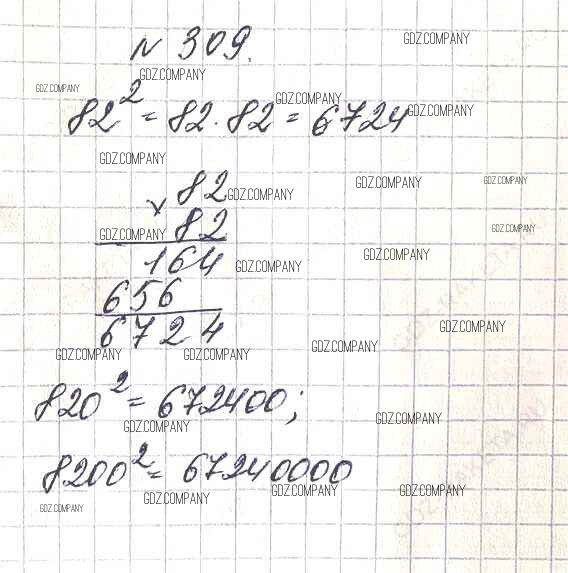 N 309.
GDZ.COMPANY
GDZ.COMPANY
GDZ.COMPANY
82² = 82 · 82 = 6724
GDZ.COMPANY
GDZ.COMPANY
GDZ.COMPANY
× 82
GDZ.COMPANY
GDZ.COMPANY
GDZ.COMPANY
82
GDZ.COMPANY
GDZ.COMPANY
164
GDZ.COMPANY
GDZ.COMPANY
656
6724
GDZ.COMPANY
GDZ.COMPANY
GDZ.COMPANY
GDZ.COMPANY
820² = 672400;
GDZ.COMPANY
GDZ.COMPANY
8200² = 67240000
GDZ.COMPANY
GDZ.COMPANY
GDZ.COMPANY
GDZ.COMPANY